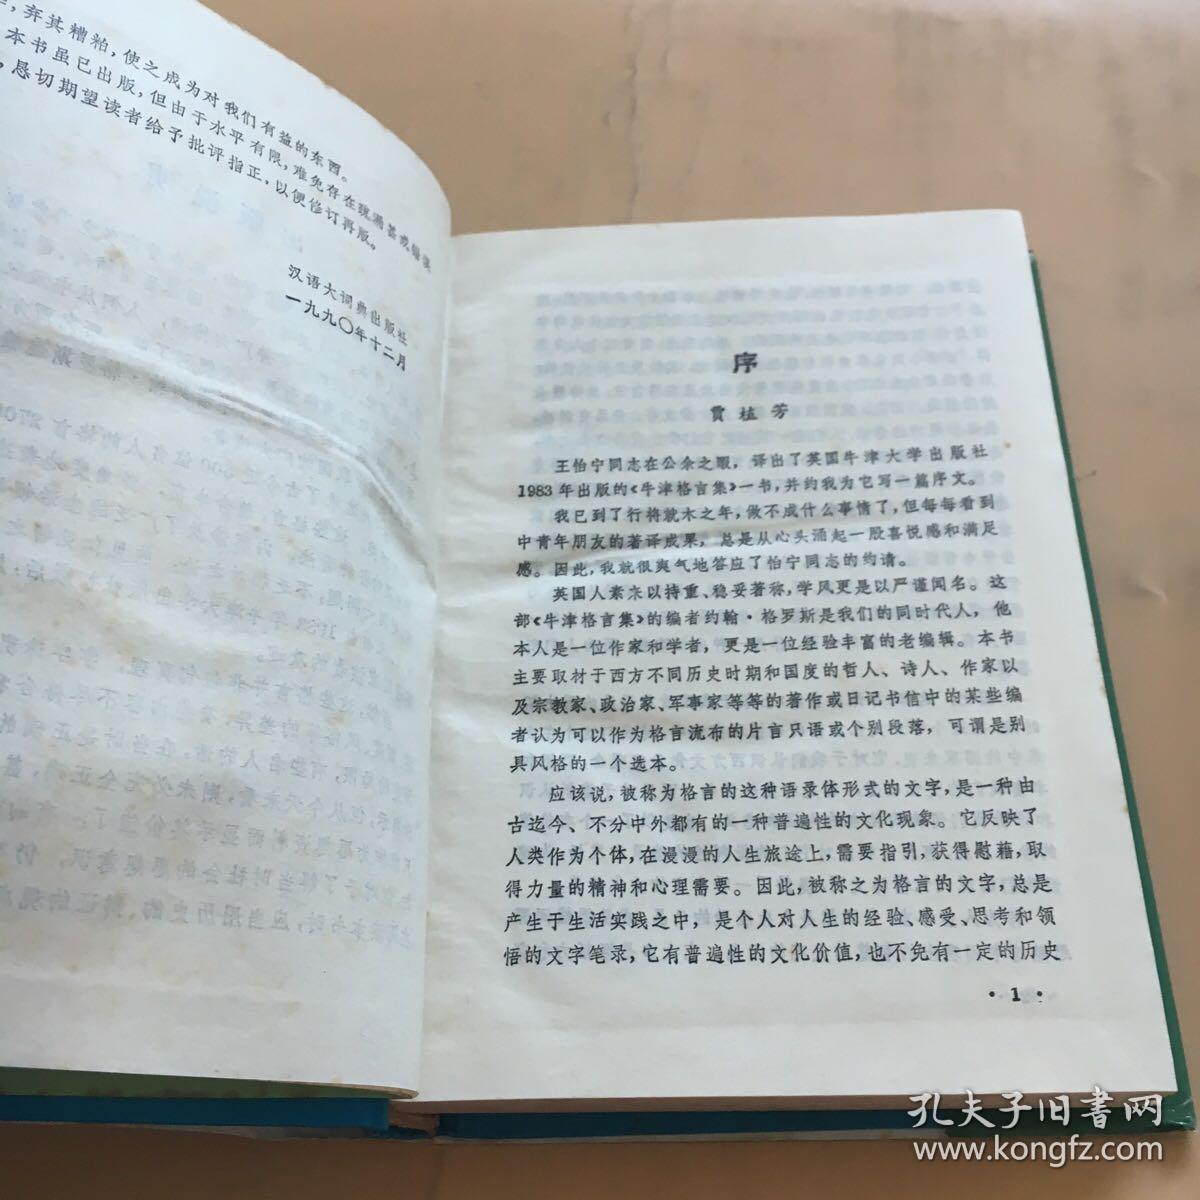 弃其糟粕,使之成为对我们有益的东西。
本书虽已出版,但由于水平有限,难免存在疏漏甚或错误
恳切期望读者给予批评指正,以便修订再版。
汉语大词典出版社
一九九〇年十二月
序
贾植芳
王怡宁同志在公余之暇,译出了英国牛津大学出版社
1983年出版的《牛津格言集》一书,并约我为它写一篇序文。
我已到了行将就木之年,做不成什么事情了,但每每看到
中青年朋友的著译成果,总是从心头涌起一股喜悦感和满足
感。因此,我就很爽气地答应了怡宁同志的约请。
英国人素来以持重、稳妥著称,学风更是以严谨闻名。这
部《牛津格言集》的编者约翰·格罗斯是我们的同时代人,他
本人是一位作家和学者,更是一位经验丰富的老编辑。本书
主要取材于西方不同历史时期和国度的哲人、诗人、作家以
及宗教家、政治家、军事家等等的著作或日记书信中的某些编
者认为可以作为格言流布的片言只语或个别段落,可谓是别
具风格的一个选本。
应该说,被称为格言的这种语录体形式的文字,是一种由
古迄今、不分中外都有的一种普遍性的文化现象。它反映了
人类作为个体,在漫漫的人生旅途上,需要指引,获得慰藉,取
得力量的精神和心理需要。因此,被称之为格言的文字,总是
产生于生活实践之中,是个人对人生的经验、感受、思考和领
悟的文字笔录,它有普遍性的文化价值,也不免有一定的历史
·1·
孔夫子旧书网
www.kongfz.com